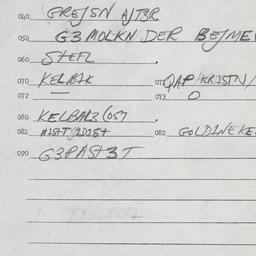 040 GREJSN AJTBR
050 G3 MOLKN DER BEJME
060 STEFL
070 KELBIK 071 QAP/KRISTN/
072 — 073 O
080 KELBAL3 (057
081 082 GOLDINE KE
090 G3PAST3T